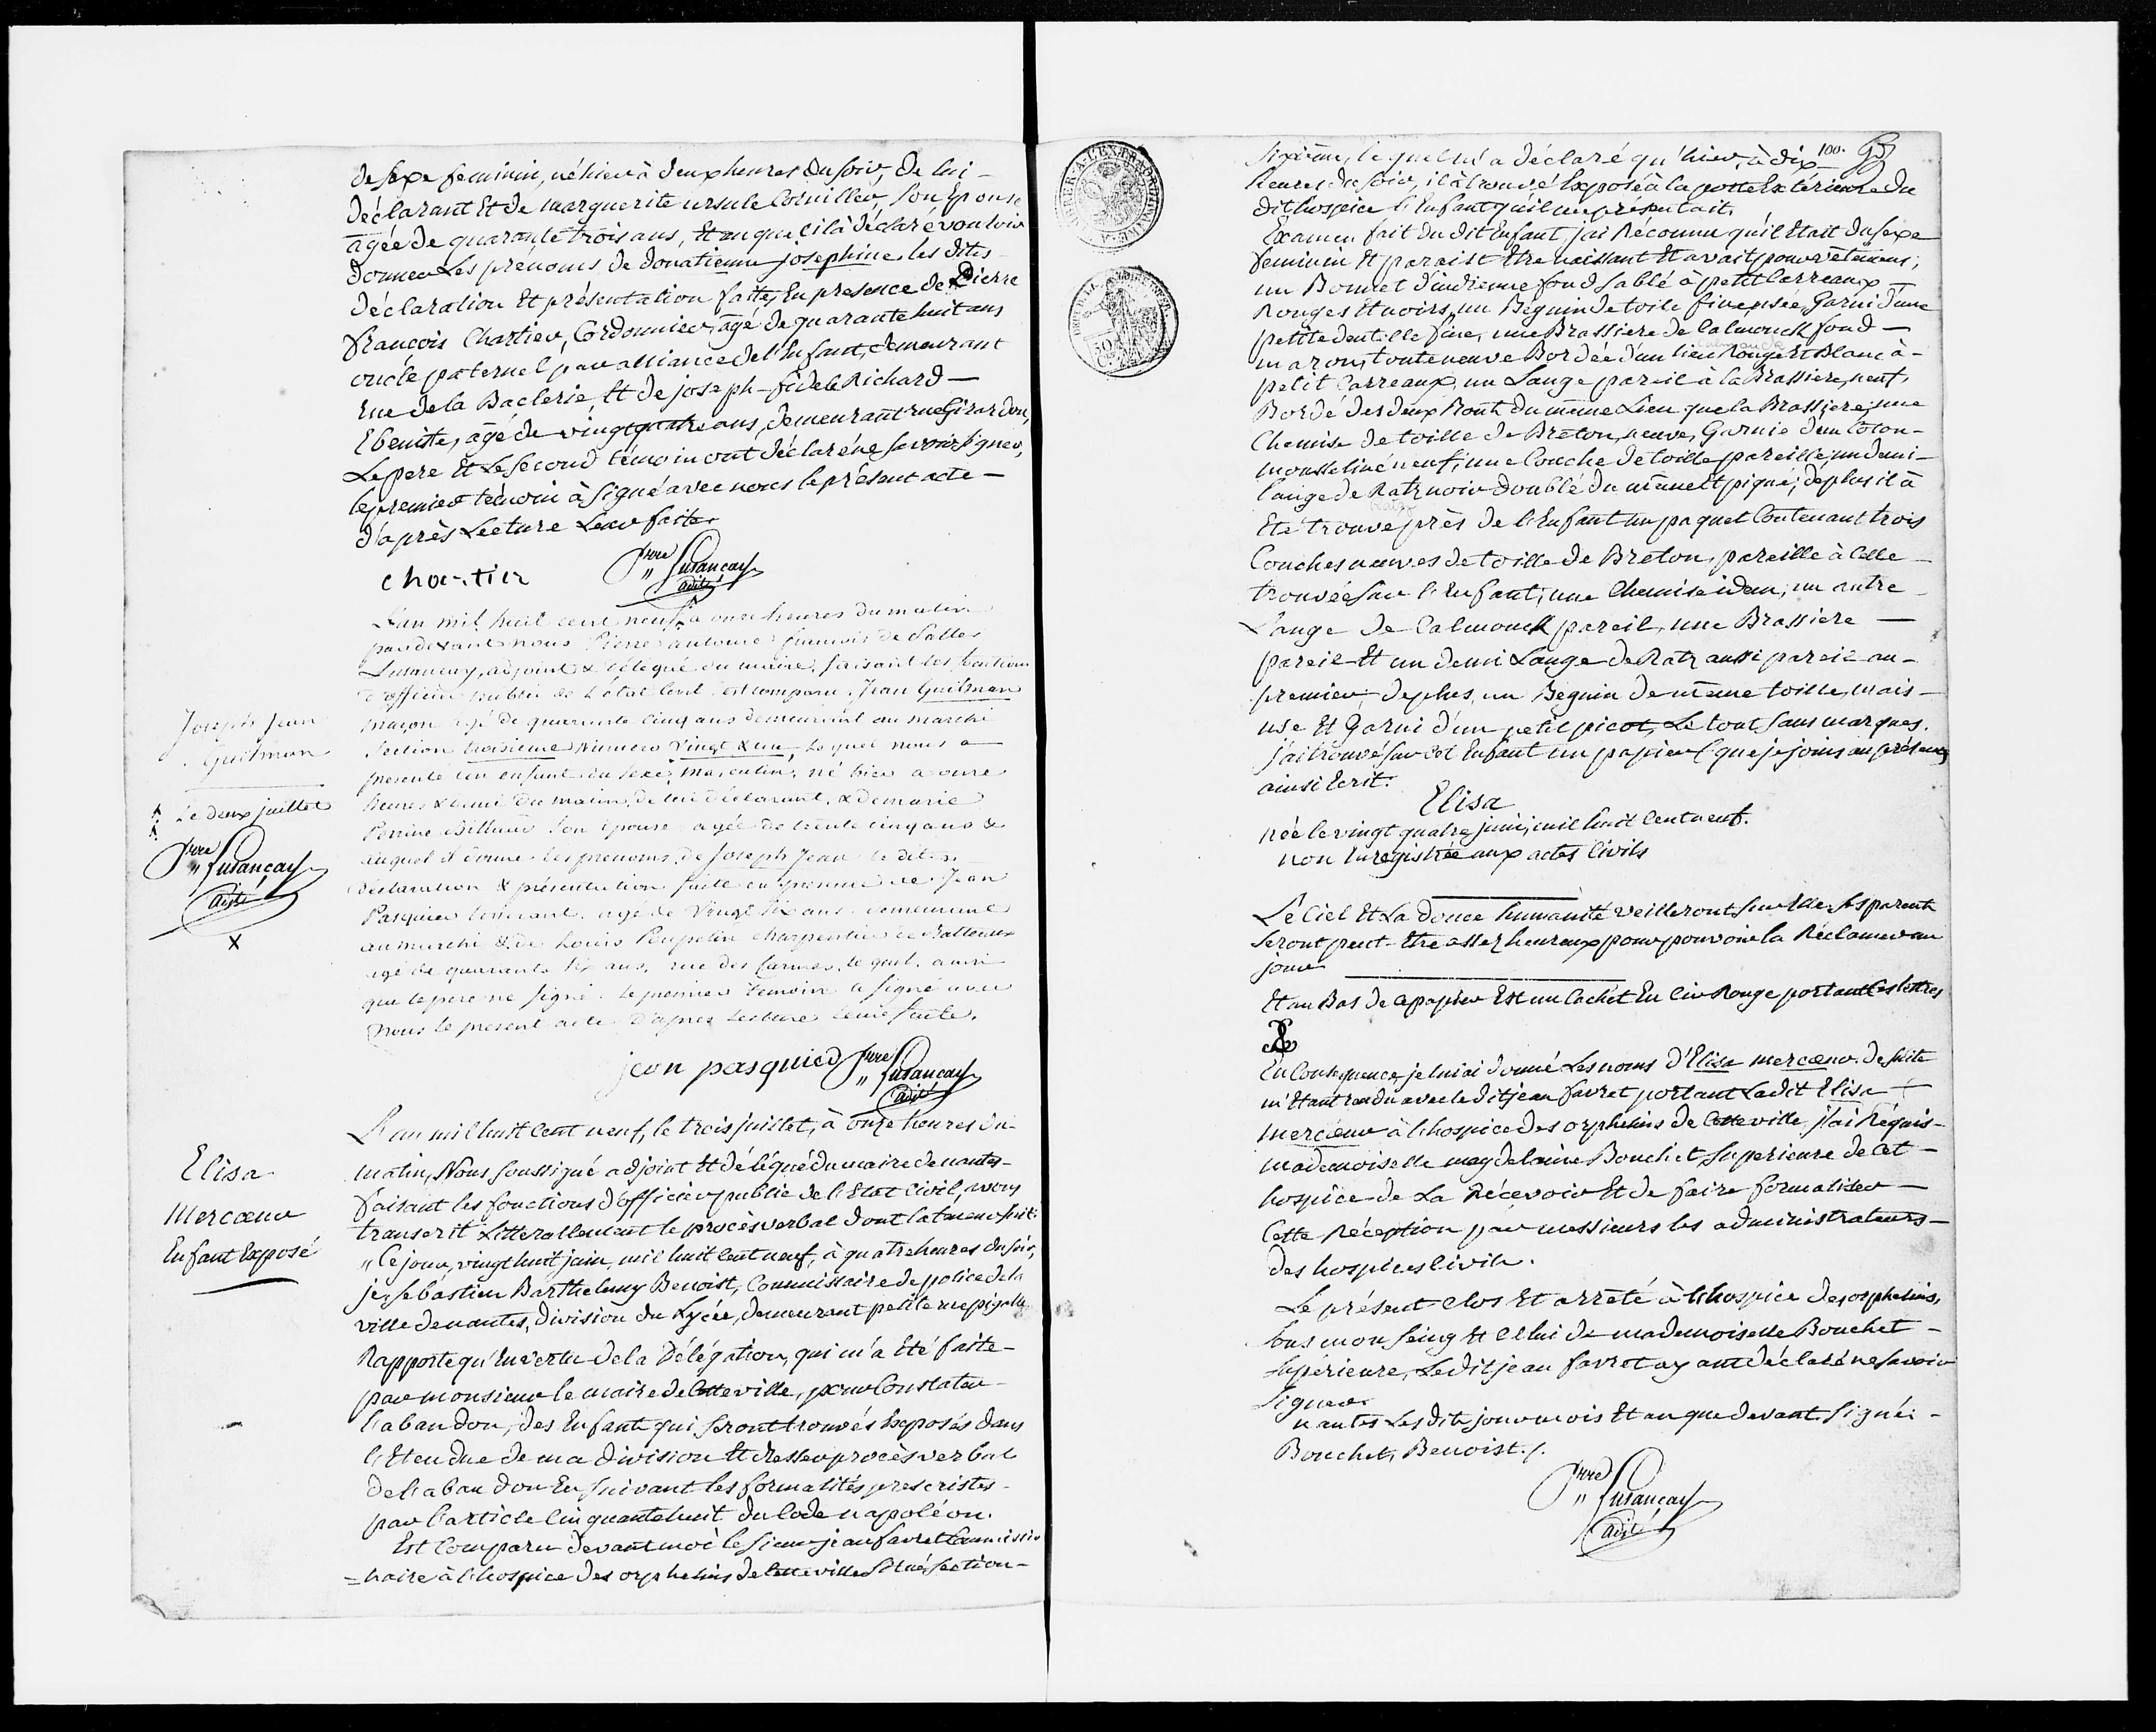 de sexe feminin, né hier à deux heures du soir, de lui
déclarant Et de marguerite ursule Cornillev, Son Epouse
agée de quarante trois ans, Et auquel il à déclaré vouloir
donner Les prénoms de donatienne josephine, les dites
déclaration Et présentation faites, En presence de Pierre
françois Chartier, Cordonnier, agé de quarante huit ans
oncle paternel par alliance de l'Enfant, demeurant
rue de la Baclerie Et de joseph fidele Richard
Ebeniste, agé de vingt quatre ans, demeurant rue Girardon,
Le pere Et Le Second témoin ont déclaré ne savoir signer,
le premier témoin à Signé avec nous le présent acte
d'après Lecture Leur faite.
chartier
Lusançay
adjt
Joseph Jean
Guilman
Le deux juillet
Lusançay
adjt
X
L'an mil huit cent neuf, à onze heures du matin
par devant nous Pierre antoine françois de Salles
Lusancay, adjoint & délégué du maire, faisant les fonctions
d'officier public de L'état Civil est comparu Jean Guilman
maçon agé de quarante cinq ans demeurant au marché
Section troisieme numero vingt & un, Lequel nous a
presenté un enfant du sexe masculin, né hier a onze
heures & demi du matin, de lui déclarant, & de marie
Perrine Son épouse agée de trente cinq ans &
auquel il donne les prenoms de Joseph Jean le dites
declaration & présentation faite en presence de Jean
Pasquier agé de Vingt Six ans demeurant
au marché & de Louis Poupelin charpentier de Batteaux
agé de quarante Six ans, rue des Carmes, le quel ainsi
que le pere ne signe. le premier temoin a signé avec
nous le present acte D'apres lecture leur faite.
jean pasquier
Lusançay
adjt
Elisa
Mercœur
Enfant Exposé
L'an mil huit Cent neuf, le trois juillet, à onze heures du
matin, Nous Soussigné adjoint Et délégué du maire de nantes
faisant les fonctions d'officier public de l'Etat Civil, avons
transcrit Litterallement le procès verbal dont la teneur suit:
"Ce jour, vingt huit juin, mil huit Cent neuf, à quatre heures du soir,
je, Sébastien Barthelemy Benoist, Commissaire de police de la
ville de nantes, division du Lycée, demeurant petite rue pigalle
Rapporte qu'En vertu de la Délégation, qui m'a Eté faite
par monsieur le maire de Cette ville, pour Constater
l'abandon, des Enfants qui seront trouvés Exposés dans
l'Etendue de ma division Et dresser procès verbal
de l'abandon En suivant les formalités prescrites
par l'article Cinquante huit du Code napoléon.
Est Comparu devant moi le Sieur jean favret Commissio
=naire à l'hospice des orphelins de Cette ville Situé Section
100.
Sixième, lequel m'a déclaré qu'hier, à dix
heures du soir, il à trouvé Exposé à la porte Extérieure du
dit hospice l'Enfant qu'il me présentait.
Examen fait du dit Enfant, j'ai Réconnu qu'il Etait du sexe
feminin Et paraist Etre naissant Et avait pour vêtemens;
un Bonnet d'indienne fond Sablé à petit Carreaux
Rouges Et noirs, un Béguin de toile fine, usée, Garni d'une
petite dentelle fine, une Brassiere de Calmouck fond
maron, toute neuve Bordée d'un lien Rouge Et Blanc à
petit Carreaux, un Lange pareil à la Brassiere, neuf,
Bordé des deux Bouts du même Lien que la Brassiere; une
Chemise de toille de Breton, neuve, Garnie d'un Coton
mousseliné neuf, une Couche de toille pareille, un demi
lange de Ratz noir doublé du même Et piqué; de plus il à
Eté trouvé près de l'Enfant un paquet Contenant trois
Couches neuves de toille de Breton, pareille à Celle
trouvée sur l'Enfant; une Chemise idem; un autre
Lange de Calmouck pareil, une Brassiere
pareil Et un demi Lange de Ratz aussi pareil au
premier; de plus, un Beguin de même toille, mais
usé Et garni d'un petit picot, Le tout Sans marques.
J'ai trouvé sur cet Enfant un papier (que je joins au présent)
ainsi Ecrit.
Elisa
née le vingt quatre juin, mil huit Cent neuf.
non Enregistrée aux actes Civils
Le Ciel Et La douce humanité Veilleront sur Elle. Ses parents
Seront peut-Etre assez heureux pour pouvoir la Réclamer un
jour
Et au Bas de ce papier Est un Cachet En Cire Rouge portant les lettres
En Conséquence, je lui ai donné Les noms d'Elisa mercœur. De Suite
m'Etant rendu avec le dit jean favret portant Ladit Elisa
mercœur à l'hospice des orphelins de Cette ville, j'ai Réquis
mademoiselle magdelaine Bouchet, Superieure de Cet
hospice de La Récevoir Et de faire formaliser
Cette Réception par messieurs les administrateurs
des hospices Civils.
Le présent Clos Et arrêté à l'hospice des orphelins,
Sous mon Seing Et Celui de mademoiselle Bouchet
Supérieure, Le dit jean favret ayant déclaré ne Savoir
Signer.
nantes Les dits jour mois Et an que devant. Signé:
Bouchet, Benoist./.
Lusançay
adjt